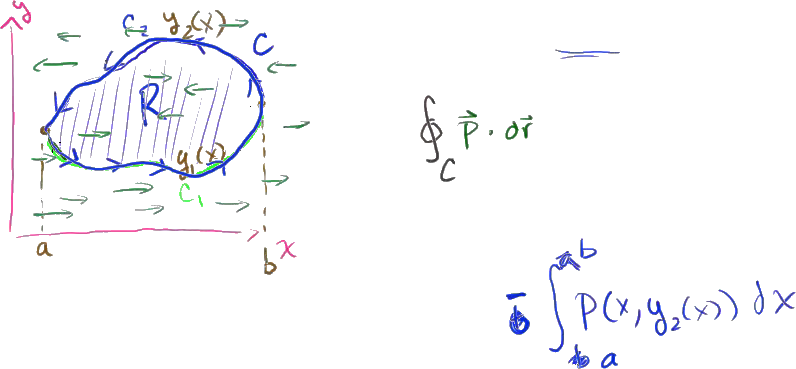 y
C₂ y₂(x)
C
R
y₁(x)
C₁
a
b
x
∮_C P⃗ · dr⃗
− ∫_a^b P(x, y₂(x)) dx